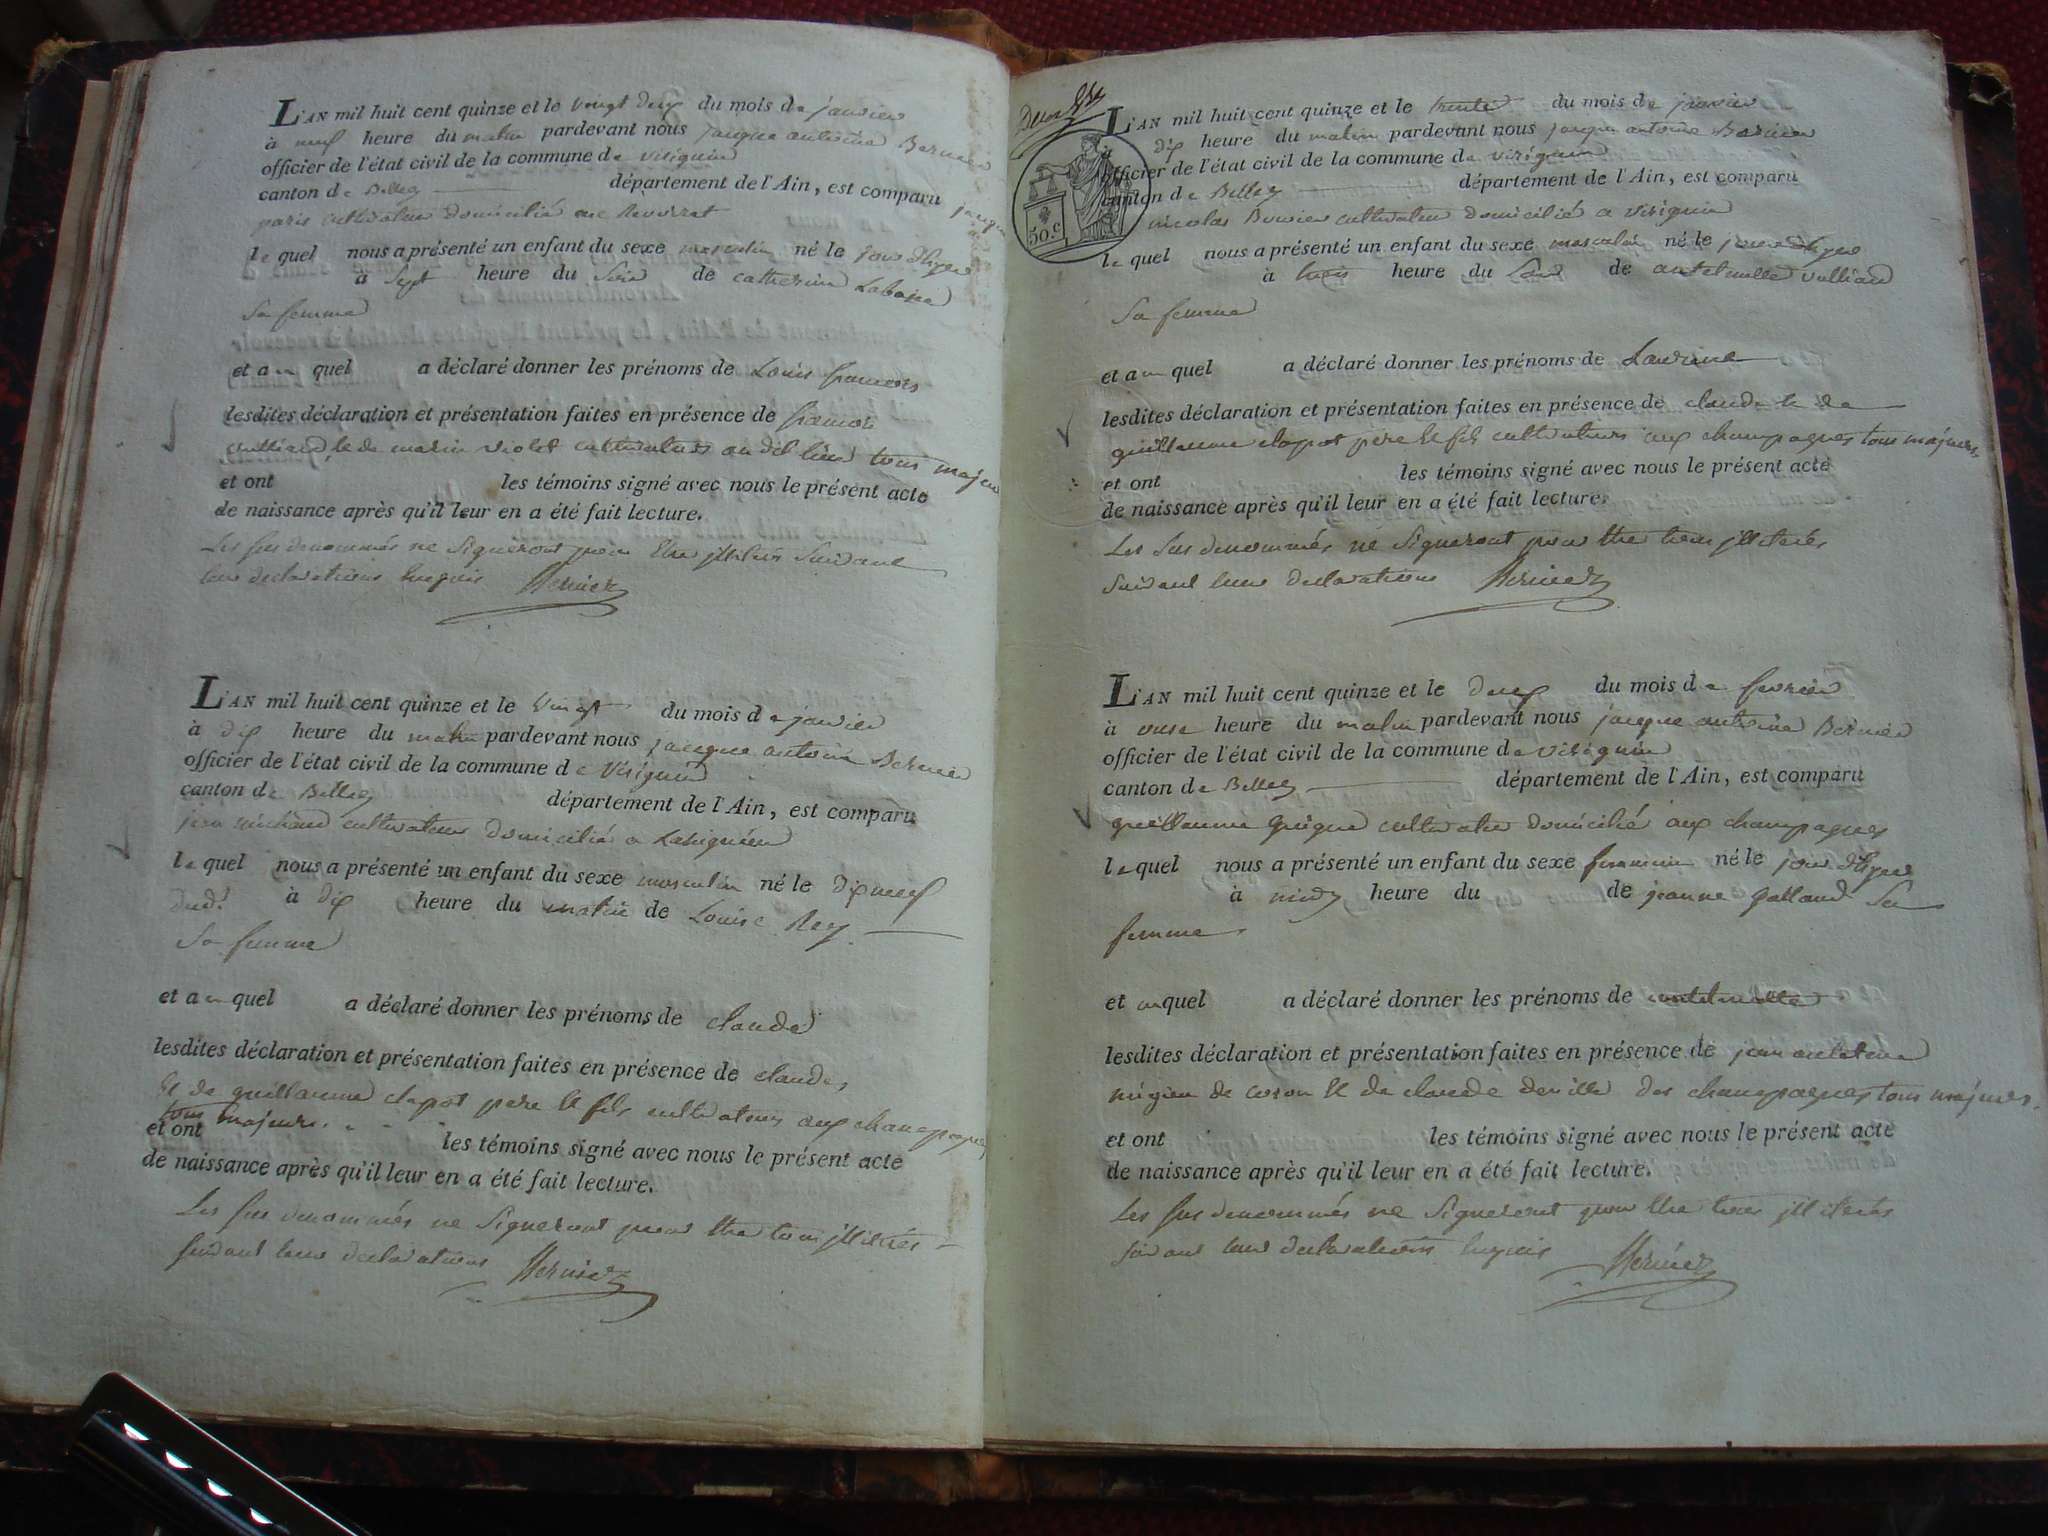 L'AN mil huit cent quinze et le vingt deux du mois de janvier
à neuf heure du matin pardevant nous jacque antoine Bernier
officier de l'état civil de la commune de virignin
canton de Belley département de l'Ain, est comparu jacque
paris cultivateur domicilié au
le quel nous a présenté un enfant du sexe masculin né le jour d'hyer
à sept heure du soir de catherine
Sa femme
et au quel a déclaré donner les prénoms de Louis francois
lesdites déclaration et présentation faites en présence de francois
vulliard et de marin violet cultivateurs au dit lieu tous majeurs
et ont les témoins signé avec nous le présent acte
de naissance après qu'il leur en a été fait lecture.
Les sus denommés ne signeront pour être illiterés suivant
leur declarations requis Bernier
L'AN mil huit cent quinze et le vingt du mois de janvier
à dix heure du matin pardevant nous jacque antoine Bernier
officier de l'état civil de la commune de Virignin
canton de Belley département de l'Ain, est comparu
jean michaud cultivateur domicilié a
le quel nous a présenté un enfant du sexe masculin né le dix neuf
dud.t à dix heure du matin de Louise Rey
Sa femme
et au quel a déclaré donner les prénoms de claude
lesdites déclaration et présentation faites en présence de claude,
et de guillaume clapot pere et fils cultivateurs aux champagnes
tous majeurs.
et ont les témoins signé avec nous le présent acte
de naissance après qu'il leur en a été fait lecture.
Les sus denommés ne signeront pour être tous illiterés
suivant leur declarations Bernier
50.c
L'AN mil huit cent quinze et le trente du mois de janvier
à dix heure du matin pardevant nous jacque antoine Bernier
officier de l'état civil de la commune de virignin
canton de Belley département de l'Ain, est comparu
nicolas cultivateur domicilié a virignin
le quel nous a présenté un enfant du sexe masculin né le jour d'hyer
à trois heure du soir de antelmette vulliard
Sa femme
et au quel a déclaré donner les prénoms de
lesdites déclaration et présentation faites en présence de claude et de
guillaume clapot père et fils cultivateurs aux champagnes tous majeurs
et ont les témoins signé avec nous le présent acte
de naissance après qu'il leur en a été fait lecture.
Les sus denommés ne signeront pour être tous illiterés
suivant leur declarations Bernier
L'AN mil huit cent quinze et le deux du mois de fevrier
à onse heure du matin pardevant nous jacque antoine Bernier
officier de l'état civil de la commune de virignin
canton de Belley département de l'Ain, est comparu
guillaume cultivateur domicilié aux champagnes
le quel nous a présenté un enfant du sexe feminin né le jour d'hyer
à midy heure du de jeanne galland Sa
femme
et au quel a déclaré donner les prénoms de antelmette
lesdites déclaration et présentation faites en présence de jean antelme
migieu de et de claude deville des champagnes tous majeurs.
et ont les témoins signé avec nous le présent acte
de naissance après qu'il leur en a été fait lecture.
Les sus denommés ne signeront pour être tous illiterés
suivant leur declarations requis Bernier